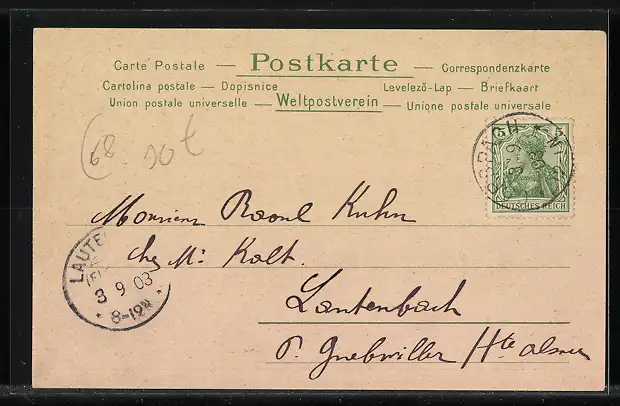 Carte Postale — Postkarte — Correspondenzkarte
Cartolina postale — Dopisnice Levelező-Lap — Briefkaart
Union postale universelle — Weltpostverein — Unione postale universale
68 10t
5
DEUTSCHES REICH
Monsieur Raoul Kuhn
chez Mr Kalt.
LAUTE
3 9 03
8-12N
Lautenbach
p. Guebwiller Hte alsace